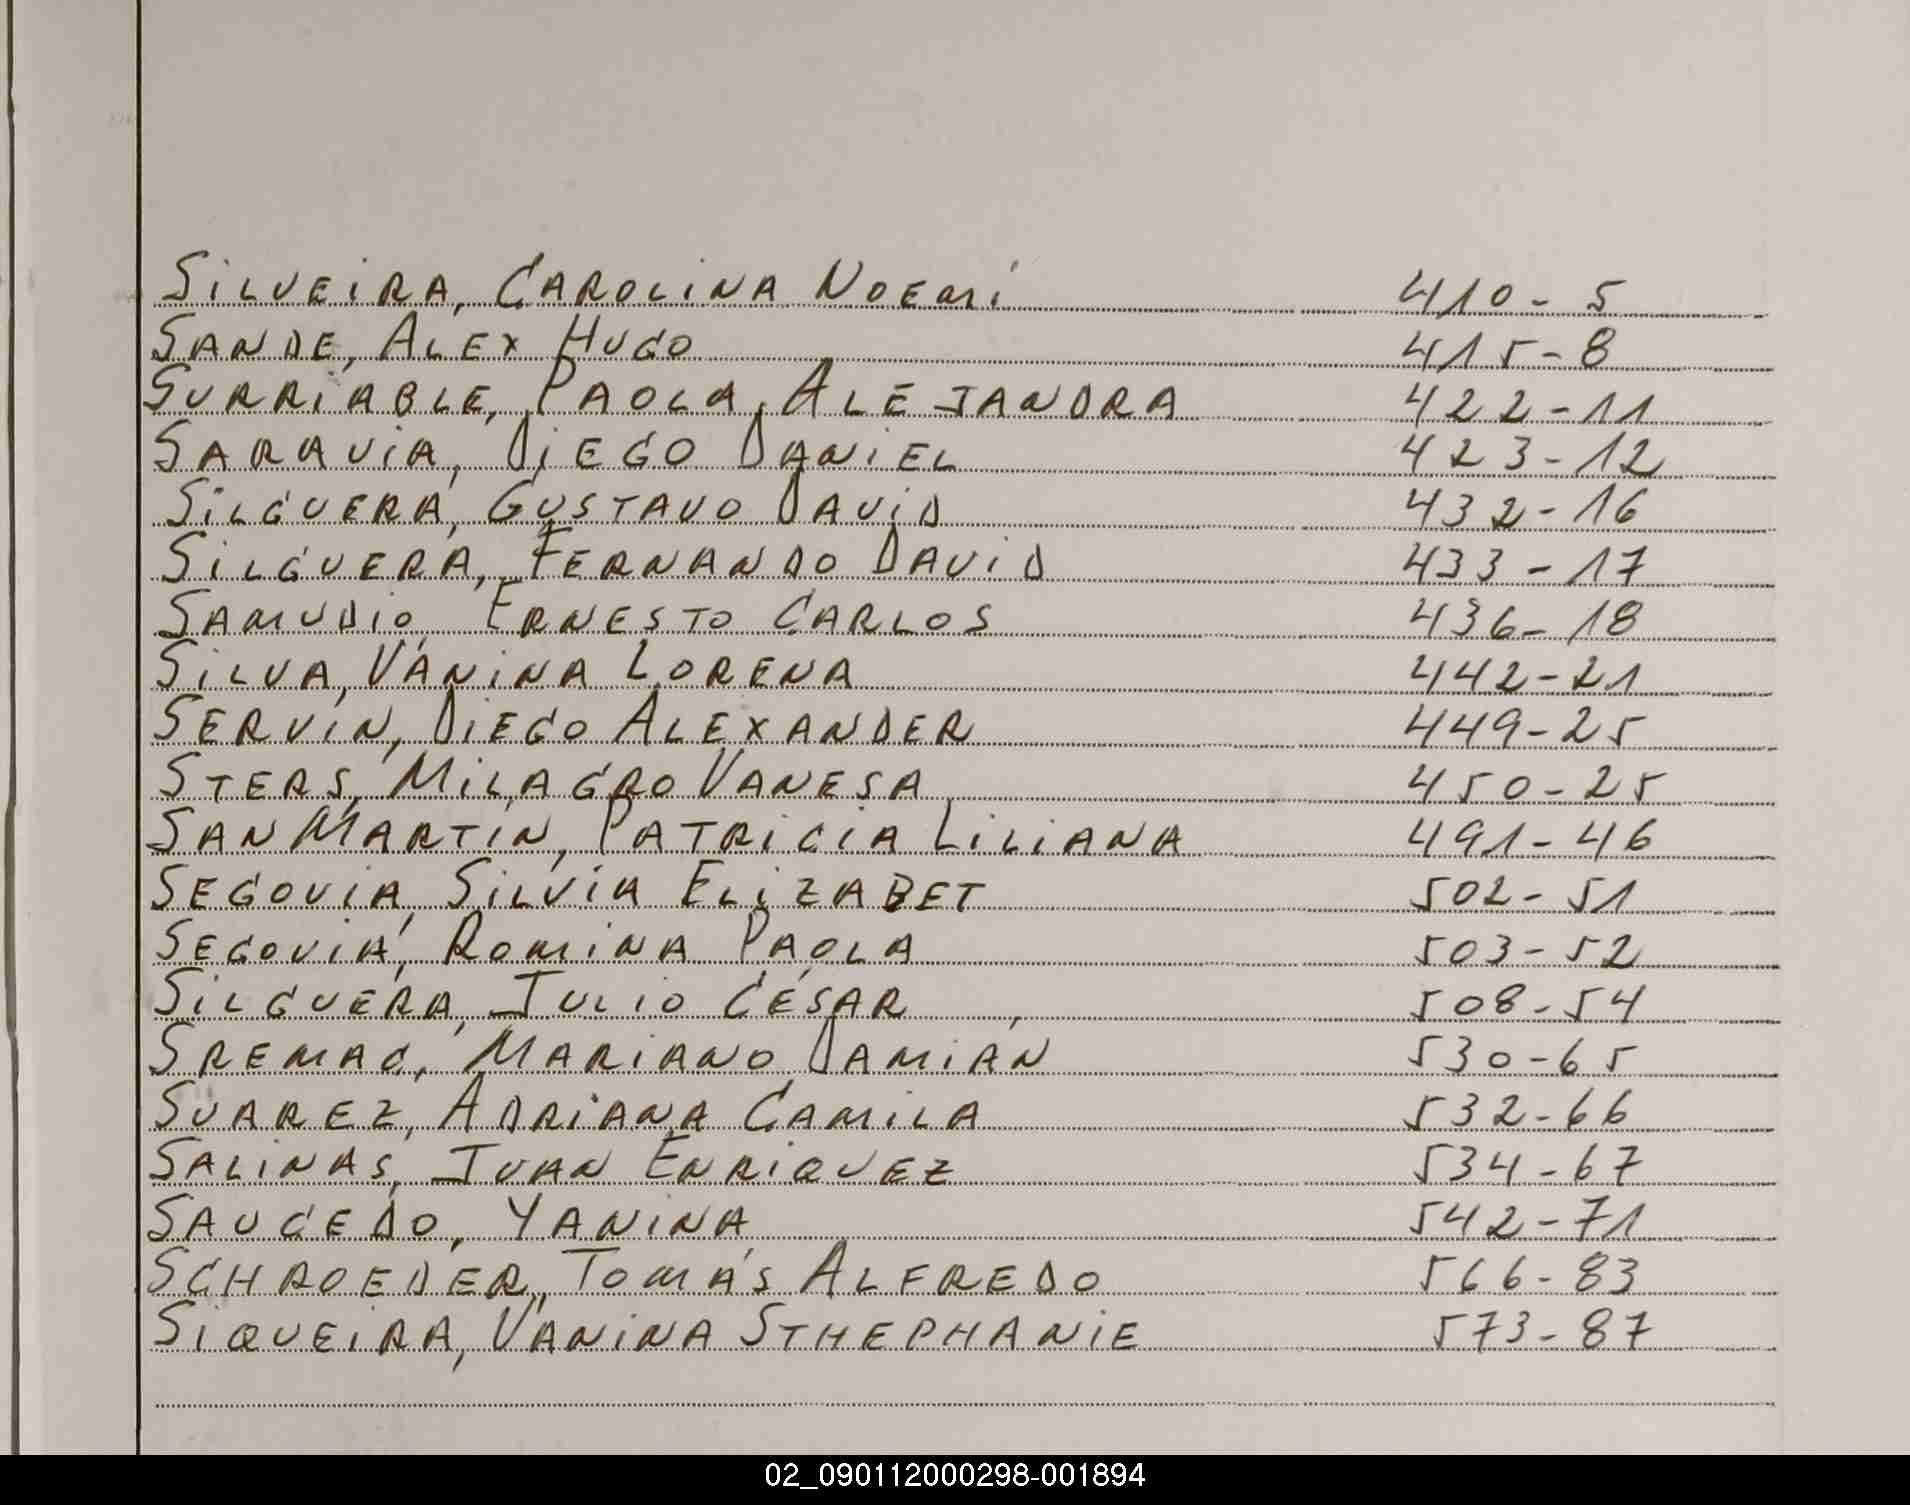 SILVEIRA, CAROLINA NOEMÍ 410-5
SANDE, ALEX HUGO 415-8
SURRIABLE, PAOLA ALEJANDRA 422-11
SARAVIA, DIEGO DANIEL 423-12
SILGUERA, GUSTAVO DAVID 432-16
SILGUERA, FERNANDO DAVID 433-17
SAMUDIO, ERNESTO CARLOS 436-18
SILVA, VANINA LORENA 442-21
SERVÍN, DIEGO ALEXANDER 449-25
STERS, MILAGRO VANESA 450-25
SAN MARTÍN, PATRICIA LILIANA 491-46
SEGOVIA, SILVIA ELIZABET 502-51
SEGOVIA, ROMINA PAOLA 503-52
SILGUERA, JULIO CÉSAR 508-54
SREMAC, MARIANO DAMIÁN 530-65
SUAREZ, ADRIANA CAMILA 532-66
SALINAS, JUAN ENRIQUEZ 534-67
SAUCEDO, YANINA 542-71
SCHROEDER, TOMÁS ALFREDO 566-83
SIQUEIRA, VANINA STHEPHANIE 573-87
02_090112000298-001894